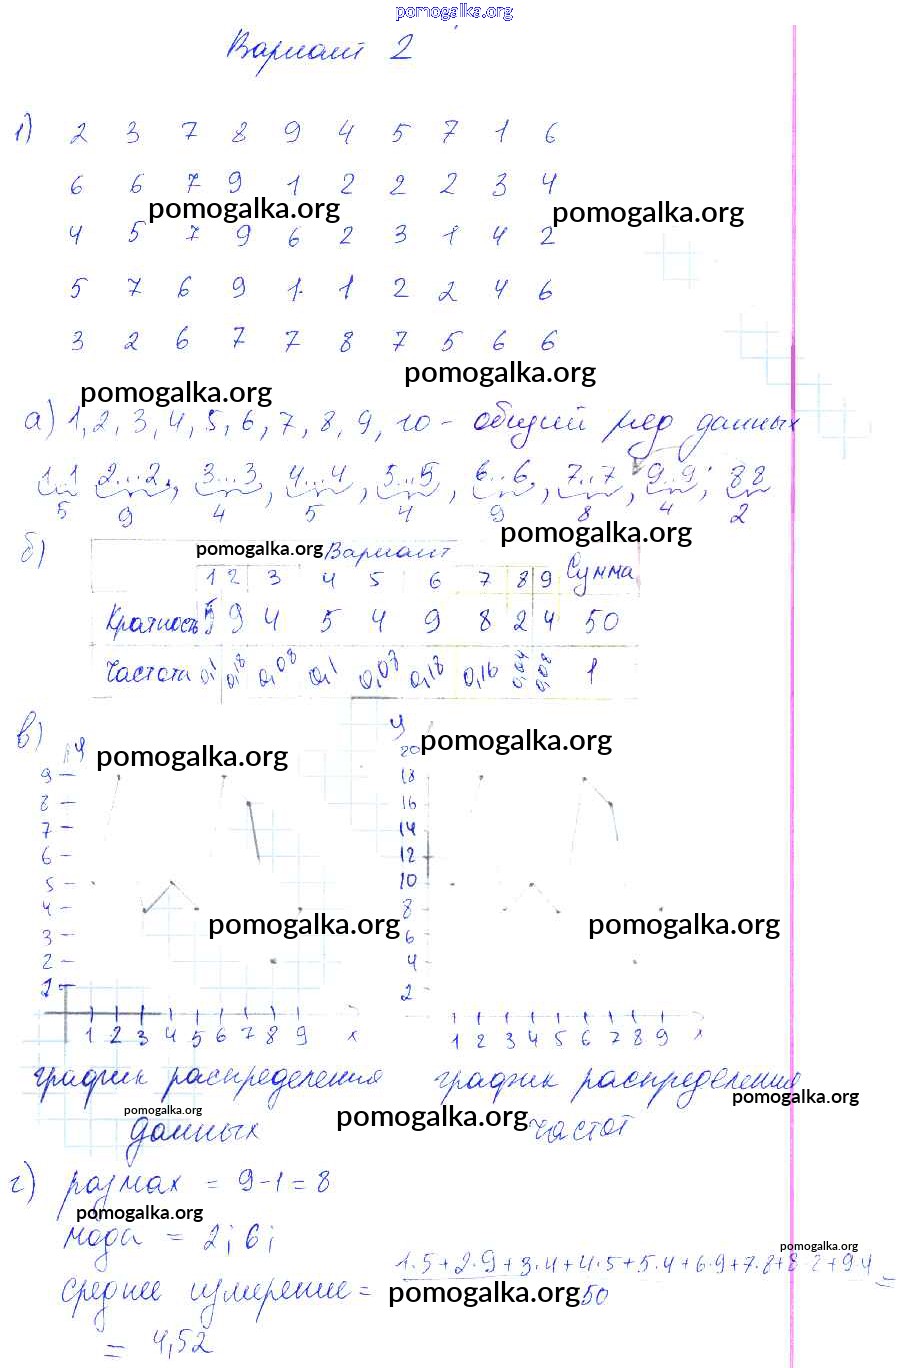 pomogalka.org
Вариант 2
1) 2 3 7 8 9 4 5 7 1 6
6 6 7 9 1 2 2 2 3 4
pomogalka.org pomogalka.org
4 5 7 9 6 2 3 1 4 2
5 7 6 9 1 1 2 2 4 6
3 2 6 7 7 8 7 5 6 6
pomogalka.org
pomogalka.org
а) 1, 2, 3, 4, 5, 6, 7, 8, 9, 10 - общий ряд данных
1..1 2...2, 3...3, 4...4, 5...5, 6...6, 7...7, 9...9; 8 8
5 9 4 5 4 9 8 4 2
pomogalka.org
б) pomogalka.org Вариант
1 2 3 4 5 6 7 8 9 Сумма
Кратность 5 9 4 5 4 9 8 2 4 50
Частота 0,1 0,18 0,08 0,1 0,08 0,18 0,16 0,04 0,08 1
в) у pomogalka.org у pomogalka.org
20
9 18
8 16
7 14
6 12
5 10
4 8
pomogalka.org pomogalka.org
3 6
2 4
1 2
1 2 3 4 5 6 7 8 9 x 1 2 3 4 5 6 7 8 9 x
график распределения график распределения
pomogalka.org
pomogalka.org pomogalka.org
данных частот
г) размах = 9-1=8
pomogalka.org
мода = 2; 6;
pomogalka.org
1·5+2·9+3·4+4·5+5·4+6·9+7·8+8·2+9·4
среднее измерение = pomogalka.org 50 =
= 4,52